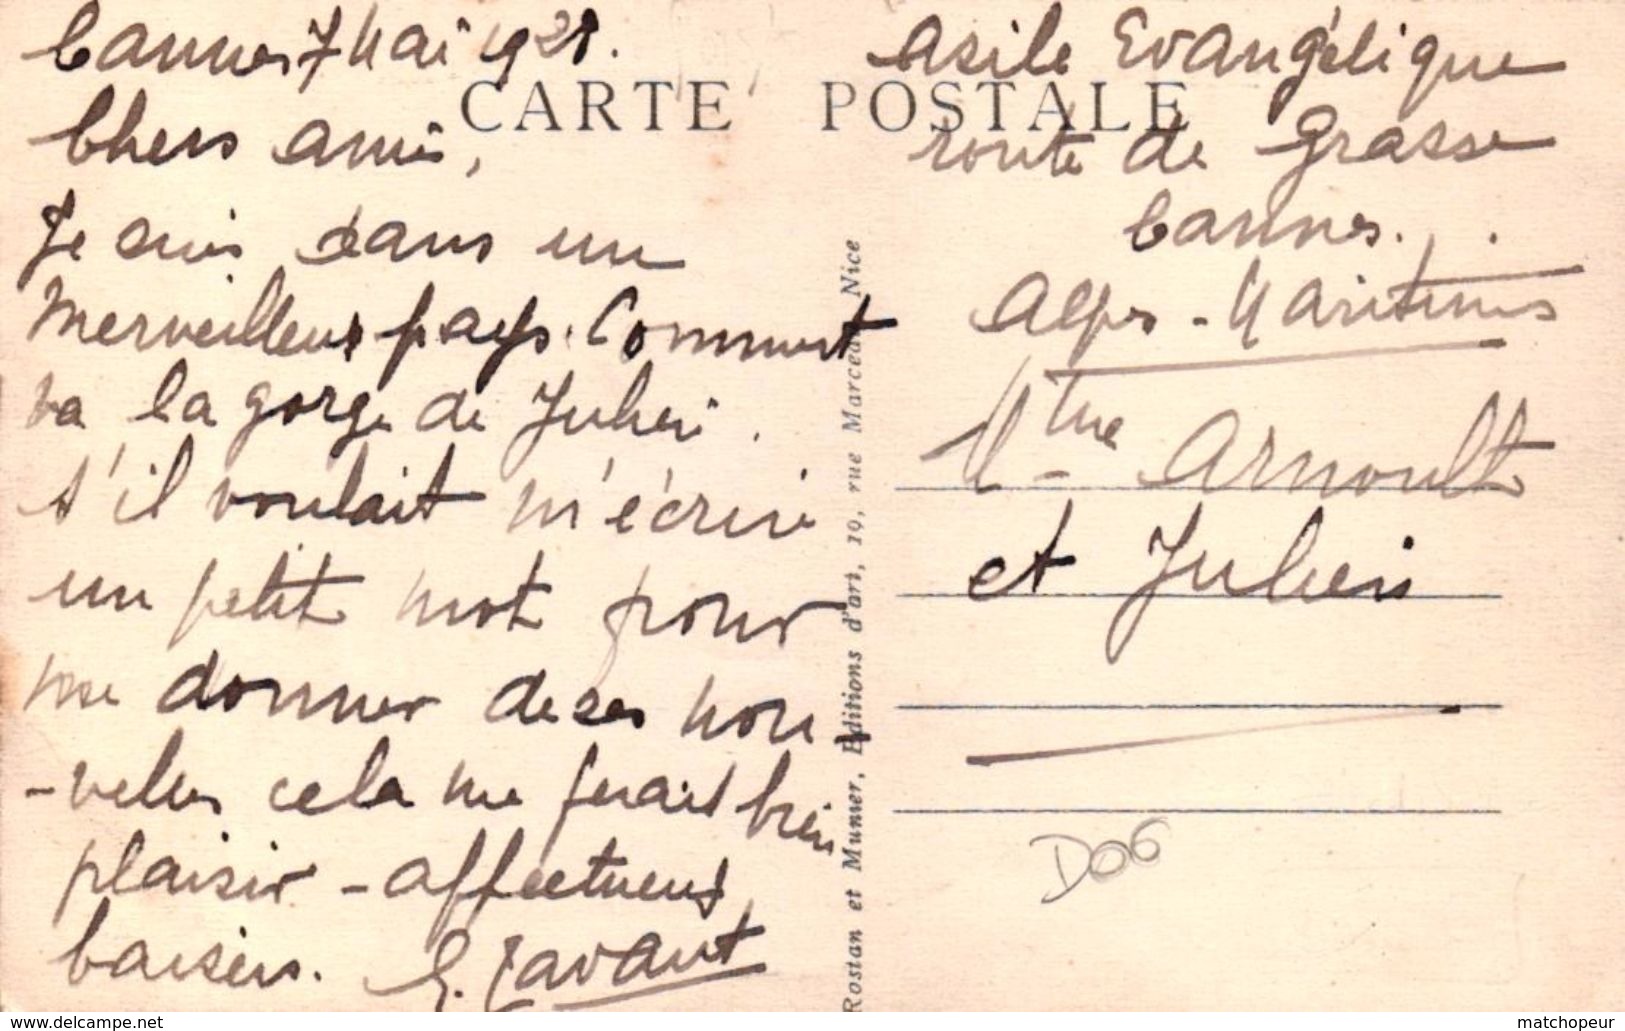 Cannes 7 Mai 1928.
CARTE POSTALE
Chers amis,
Je suis dans un
merveilleux pays. Comment
va la gorge de Julien.
s'il voulait m'écrire
un petit mot pour
me donner de ses nou
-velles cela me ferait bien
plaisir - affectueux
baisers.
Asile Evangélique
route de Grasse
Cannes.
Alpes-Maritimes
Mme Arnoult
et Julien
D06
Rostan et Munier, Editions d'art, 19, rue Marceau, Nice
www.delcampe.net
matchopeur